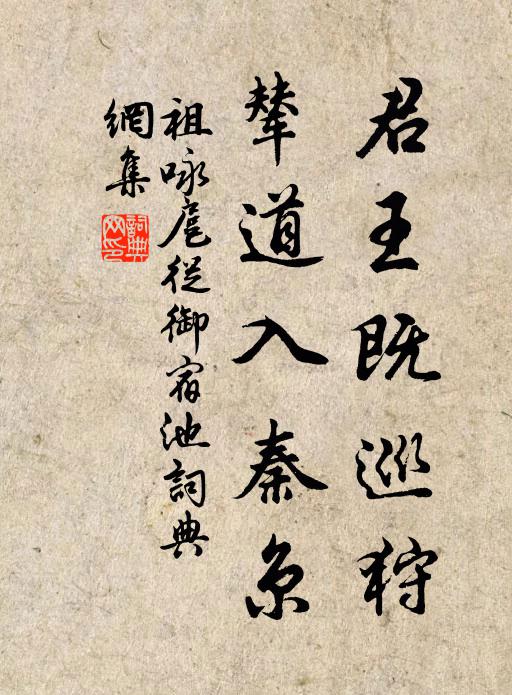 君王既巡狩
輦道入秦京
祖咏扈從御宿池詞典
網集
詞典
网印